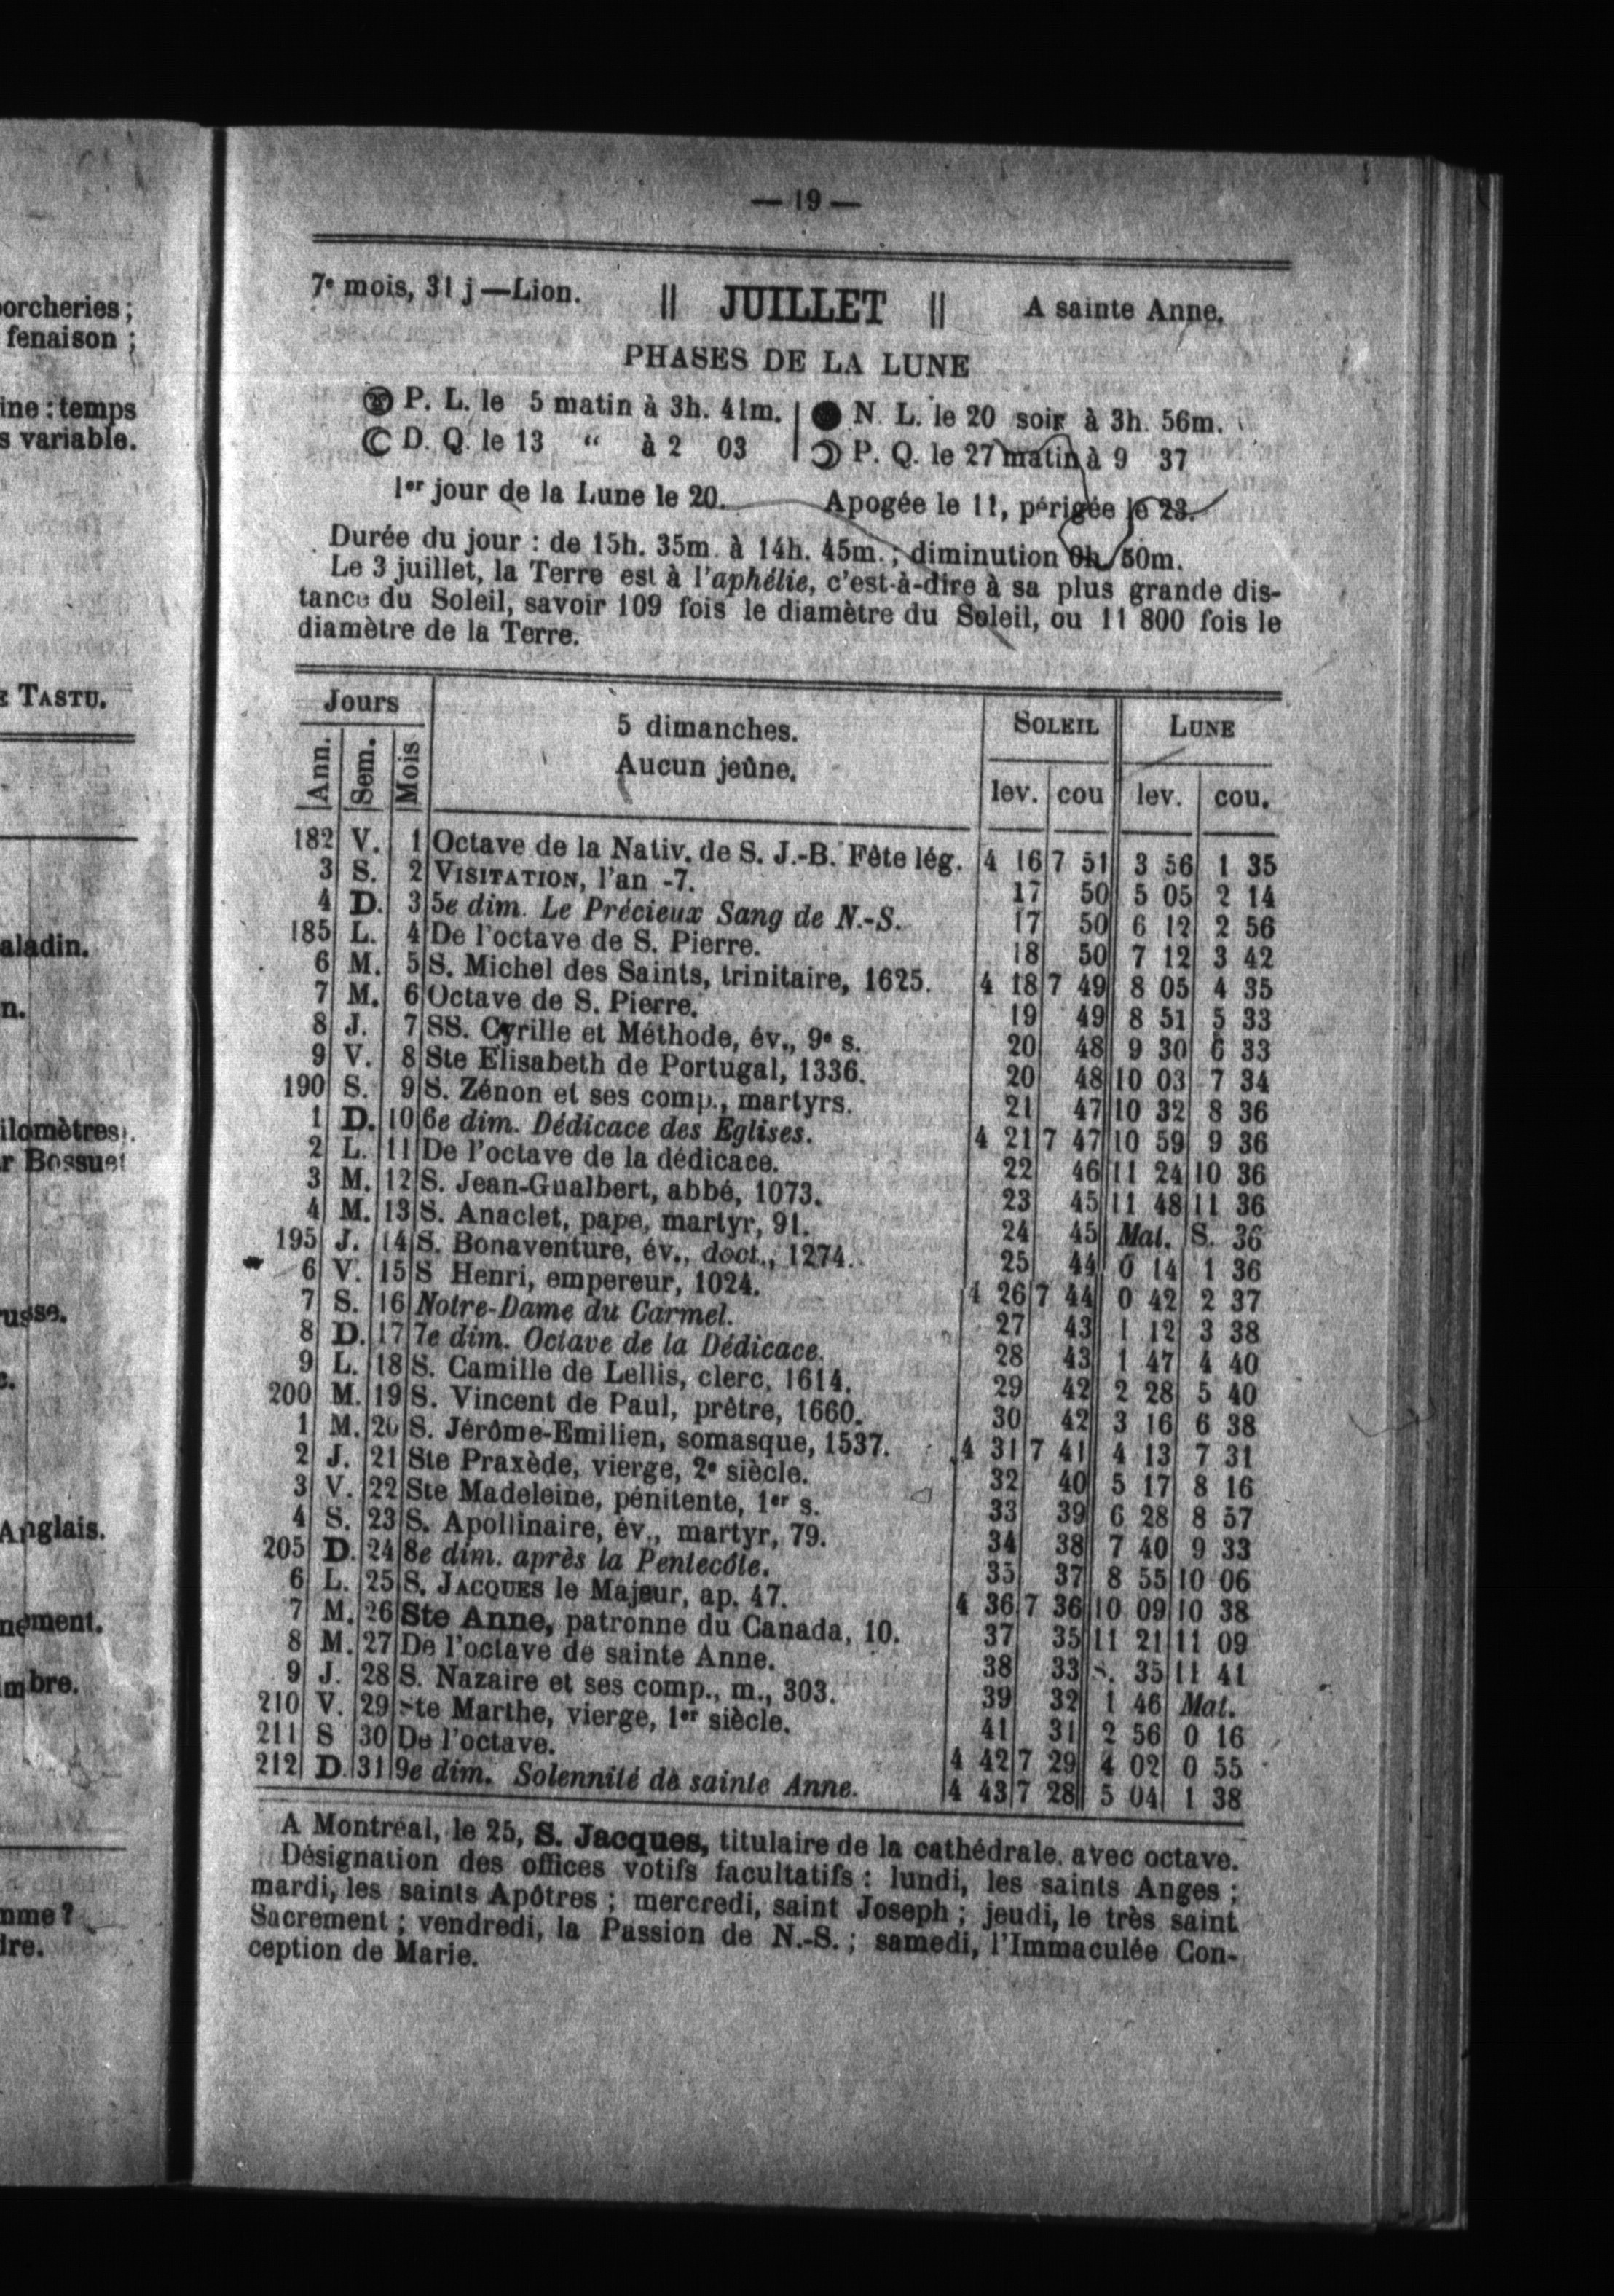 orcheries ;
fenaison ;
ine : temps
s variable.
TASTU.
aladin.
n.
ilomètres).
r Bossuet
russe.
Anglais.
nement.
mbre.
mme ?
dre.
— 19 —
7e mois, 31 j — Lion. || JUILLET || A sainte Anne.
PHASES DE LA LUNE
P. L. le 5 matin à 3h. 41m. | N. L. le 20 soir à 3h. 56m.
D. Q. le 13 “ à 2 03 | P. Q. le 27 matin à 9 37
1er jour de la Lune le 20. Apogée le 11, périgée le 23.
Durée du jour : de 15h. 35m. à 14h. 45m. ; diminution 0h. 50m.
Le 3 juillet, la Terre est à l'aphélie, c'est-à-dire à sa plus grande dis-
tance du Soleil, savoir 109 fois le diamètre du Soleil, ou 11 800 fois le
diamètre de la Terre.
Jours 5 dimanches. SOLEIL LUNE
Ann. Sem. Mois Aucun jeûne. lev. cou lev. cou.
182 V. 1 Octave de la Nativ. de S. J.-B. Fête lég. 4 16 7 51 3 56 1 35
3 S. 2 VISITATION, l'an -7. 17 50 5 05 2 14
4 D. 3 5e dim. Le Précieux Sang de N.-S. 17 50 6 12 2 56
185 L. 4 De l'octave de S. Pierre. 18 50 7 12 3 42
6 M. 5 S. Michel des Saints, trinitaire, 1625. 4 18 7 49 8 05 4 35
7 M. 6 Octave de S. Pierre. 19 49 8 51 5 33
8 J. 7 SS. Cyrille et Méthode, év., 9e s. 20 48 9 30 6 33
9 V. 8 Ste Elisabeth de Portugal, 1336. 20 48 10 03 7 34
190 S. 9 S. Zénon et ses comp., martyrs. 21 47 10 32 8 36
1 D. 10 6e dim. Dédicace des Eglises. 4 21 7 47 10 59 9 36
2 L. 11 De l'octave de la dédicace. 22 46 11 24 10 36
3 M. 12 S. Jean-Gualbert, abbé, 1073. 23 45 11 48 11 36
4 M. 13 S. Anaclet, pape, martyr, 91. 24 45 Mat. S. 36
195 J. 14 S. Bonaventure, év., doct., 1274. 25 44 0 14 1 36
6 V. 15 S Henri, empereur, 1024. 4 26 7 44 0 42 2 37
7 S. 16 Notre-Dame du Carmel. 27 43 1 12 3 38
8 D. 17 7e dim. Octave de la Dédicace. 28 43 1 47 4 40
9 L. 18 S. Camille de Lellis, clerc, 1614. 29 42 2 28 5 40
200 M. 19 S. Vincent de Paul, prêtre, 1660. 30 42 3 16 6 38
1 M. 20 S. Jérôme-Emilien, somasque, 1537. 4 31 7 41 4 13 7 31
2 J. 21 Ste Praxède, vierge, 2e siècle. 32 40 5 17 8 16
3 V. 22 Ste Madeleine, pénitente, 1er s. 33 39 6 28 8 57
4 S. 23 S. Apollinaire, év., martyr, 79. 34 38 7 40 9 33
205 D. 24 8e dim. après la Pentecôte. 35 37 8 55 10 06
6 L. 25 S. JACQUES le Majeur, ap. 47. 4 36 7 36 10 09 10 38
7 M. 26 Ste Anne, patronne du Canada, 10. 37 35 11 21 11 09
8 M. 27 De l'octave de sainte Anne. 38 33 S. 35 11 41
9 J. 28 S. Nazaire et ses comp., m., 303. 39 32 1 46 Mat.
210 V. 29 Ste Marthe, vierge, 1er siècle. 41 31 2 56 0 16
211 S 30 De l'octave. 4 42 7 29 4 02 0 55
212 D. 31 9e dim. Solennité de sainte Anne. 4 43 7 28 5 04 1 38
A Montréal, le 25, S. Jacques, titulaire de la cathédrale. avec octave.
Désignation des offices votifs facultatifs : lundi, les saints Anges ;
mardi, les saints Apôtres ; mercredi, saint Joseph ; jeudi, le très saint
Sacrement ; vendredi, la Passion de N.-S. ; samedi, l'Immaculée Con-
ception de Marie.